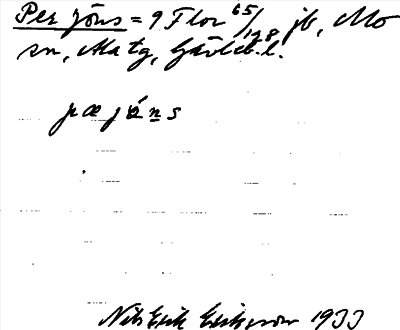 Per Jöns = 9 Flor 65/128 jb, Mo
sn, Ma tg, Gävleb. l.
pæ jö́ns
Nils Erik Eriksson 1933